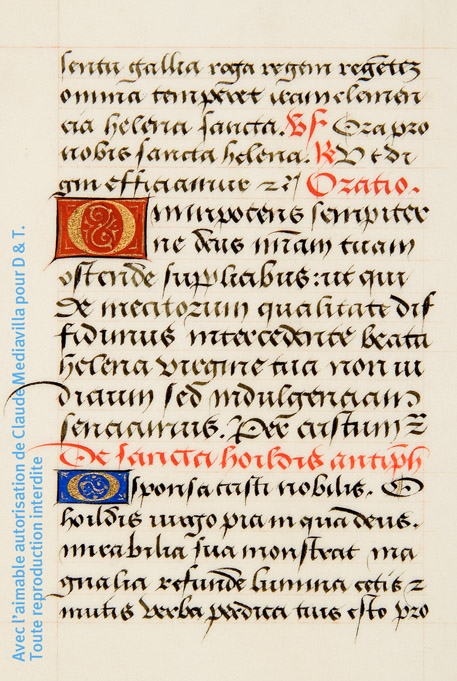 sentu gallia roga regem regētē
omnia temperet
cia helena sancta. Vs Ora pro
nobis sancta helena. R Vt di
gni efficiamur Oratio.
Omnipotens sempiter
ne deus mīam tuam
ostende supplicibus: ut qui
de meritorum qualitate dif
fidimus intercedente beata
helena virgine tua non iu
dicium sed indulgenciam
senciamus. Per cristum
De sancta hoildis antiph
O sponsa cristi nobilis. O
hoildis virgo pia in qua deus.
mirabilia sua monstrat ma
gnalia refunde lumina cetis
mutis verba perdita tuis esto pro
Avec l'aimable autorisation de Claude Mediavilla pour D & T.
Toute reproduction interdite